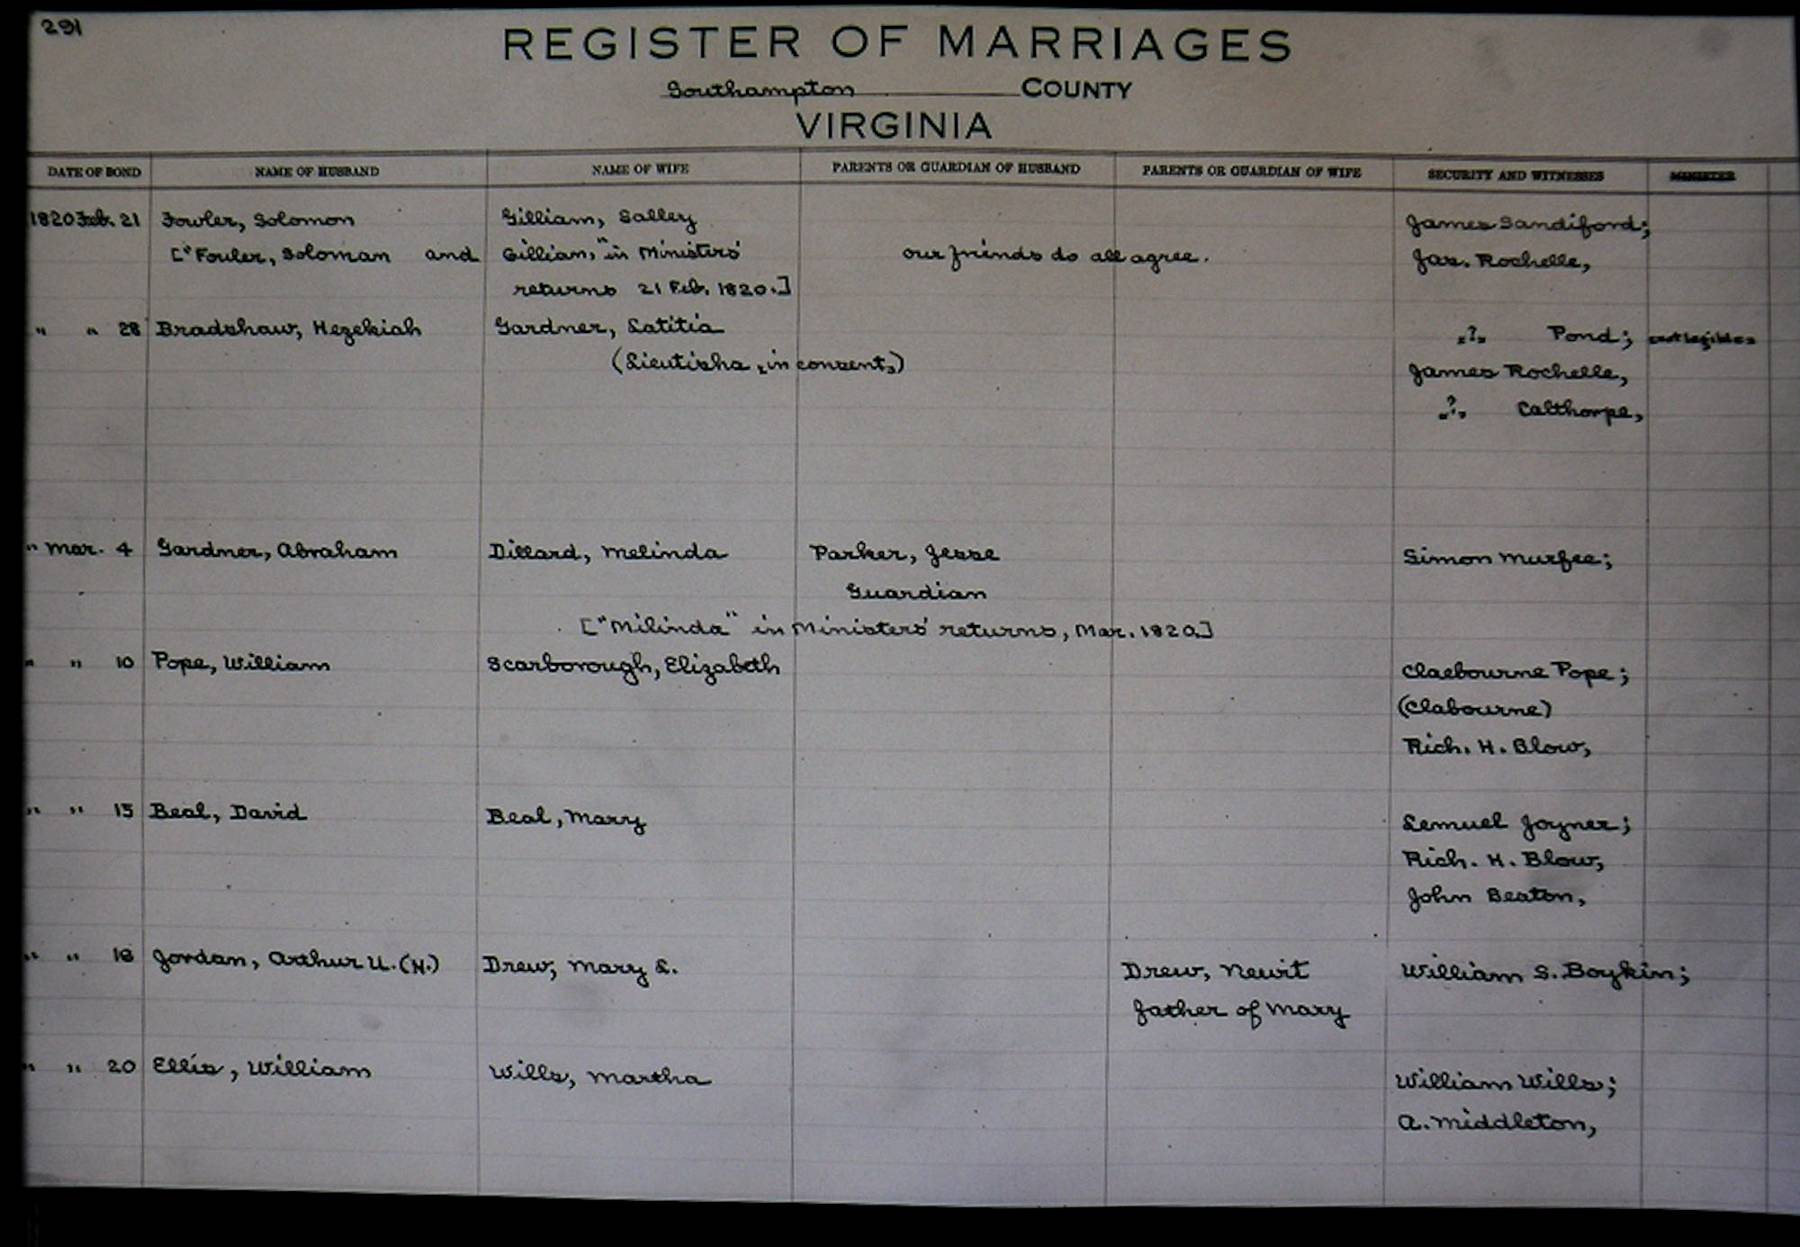 291
REGISTER OF MARRIAGES
Southampton COUNTY
VIRGINIA
DATE OF BOND NAME OF HUSBAND NAME OF WIFE PARENTS OR GUARDIAN OF HUSBAND PARENTS OR GUARDIAN OF WIFE SECURITY AND WITNESSES MINISTER
1820 Feb. 21 Fowler, Solomon Gilliam, Salley James Sandiford;
["Fouler, Soloman and Gillian," in Ministers' our friends do all agree. Jas. Rochelle,
returns 21 Feb. 1820.]
" " 28 Bradshaw, Hezekiah Gardner, Latitia "?" Pond; not legible
(Lieutisha "in consent") James Rochelle,
"?" Calthorpe,
" Mar. 4 Gardner, Abraham Dillard, Melinda Parker, Jesse Simon Murfee;
Guardian
["Milinda" in Ministers' returns, Mar. 1820.]
" " 10 Pope, William Scarborough, Elizabeth Claebourne Pope;
(Clabourne)
Rich. H. Blow,
" " 15 Beal, David Beal, Mary Lemuel Joyner;
Rich. H. Blow,
John Beaton,
" " 18 Jordan, Arthur U. (H.) Drew, Mary L. Drew, Newit William S. Boykin;
father of Mary
" " 20 Ellis, William Wills, Martha William Wills;
A. Middleton,